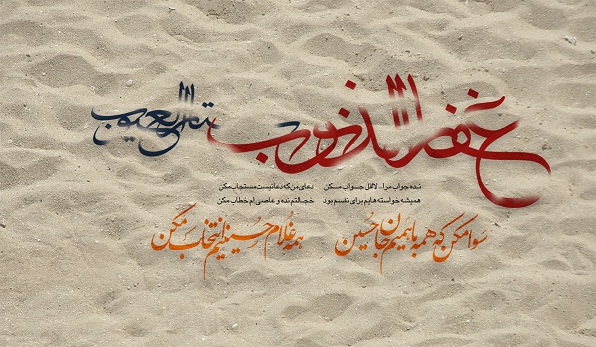 غفار الذنوب
ستار العیوب
نده جواب مرا.. لااقل جواب مکن دعای من که دعا نیست مستجاب مکن
همیشه خواسته هایم برای نفسم بود خجالتم نده و عاصی ام خطاب مکن
سوا مکن که همه با همیم جان حسین همه غلام حسینیم انتخاب مکن